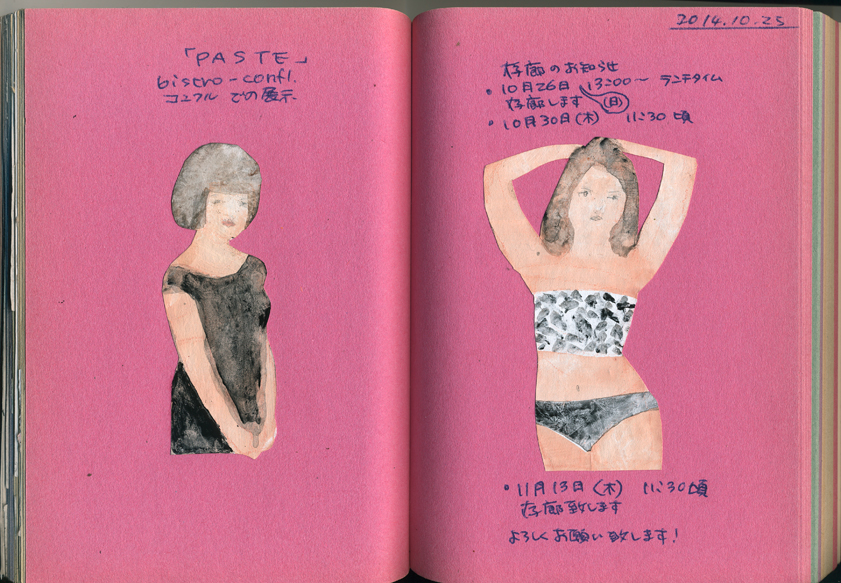 「PASTE」
bistro-confl.
コンフル での展示
2014.10.25
在廊のお知らせ
• 10月26日 13:00〜 ランチタイム
在廊します (日)
• 10月30日(木) 11:30 頃
• 11月13日(木) 11:30頃
在廊致します
よろしくお願い致します!